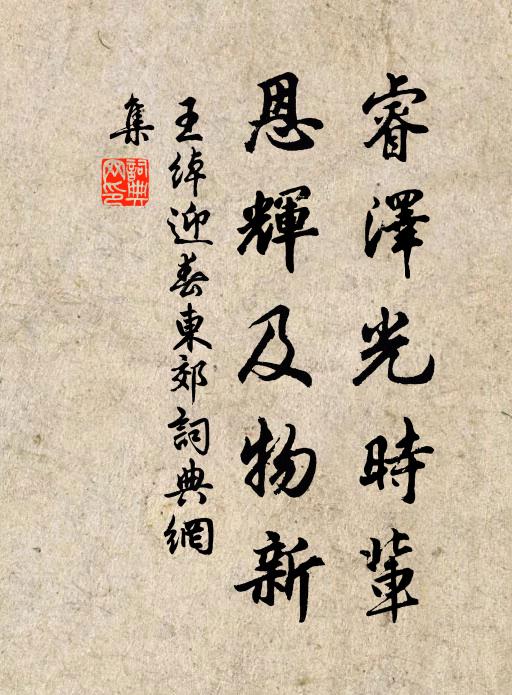 睿澤光時輩
恩輝及物新
王綽迎春東郊詞典網
集
詞典
網印